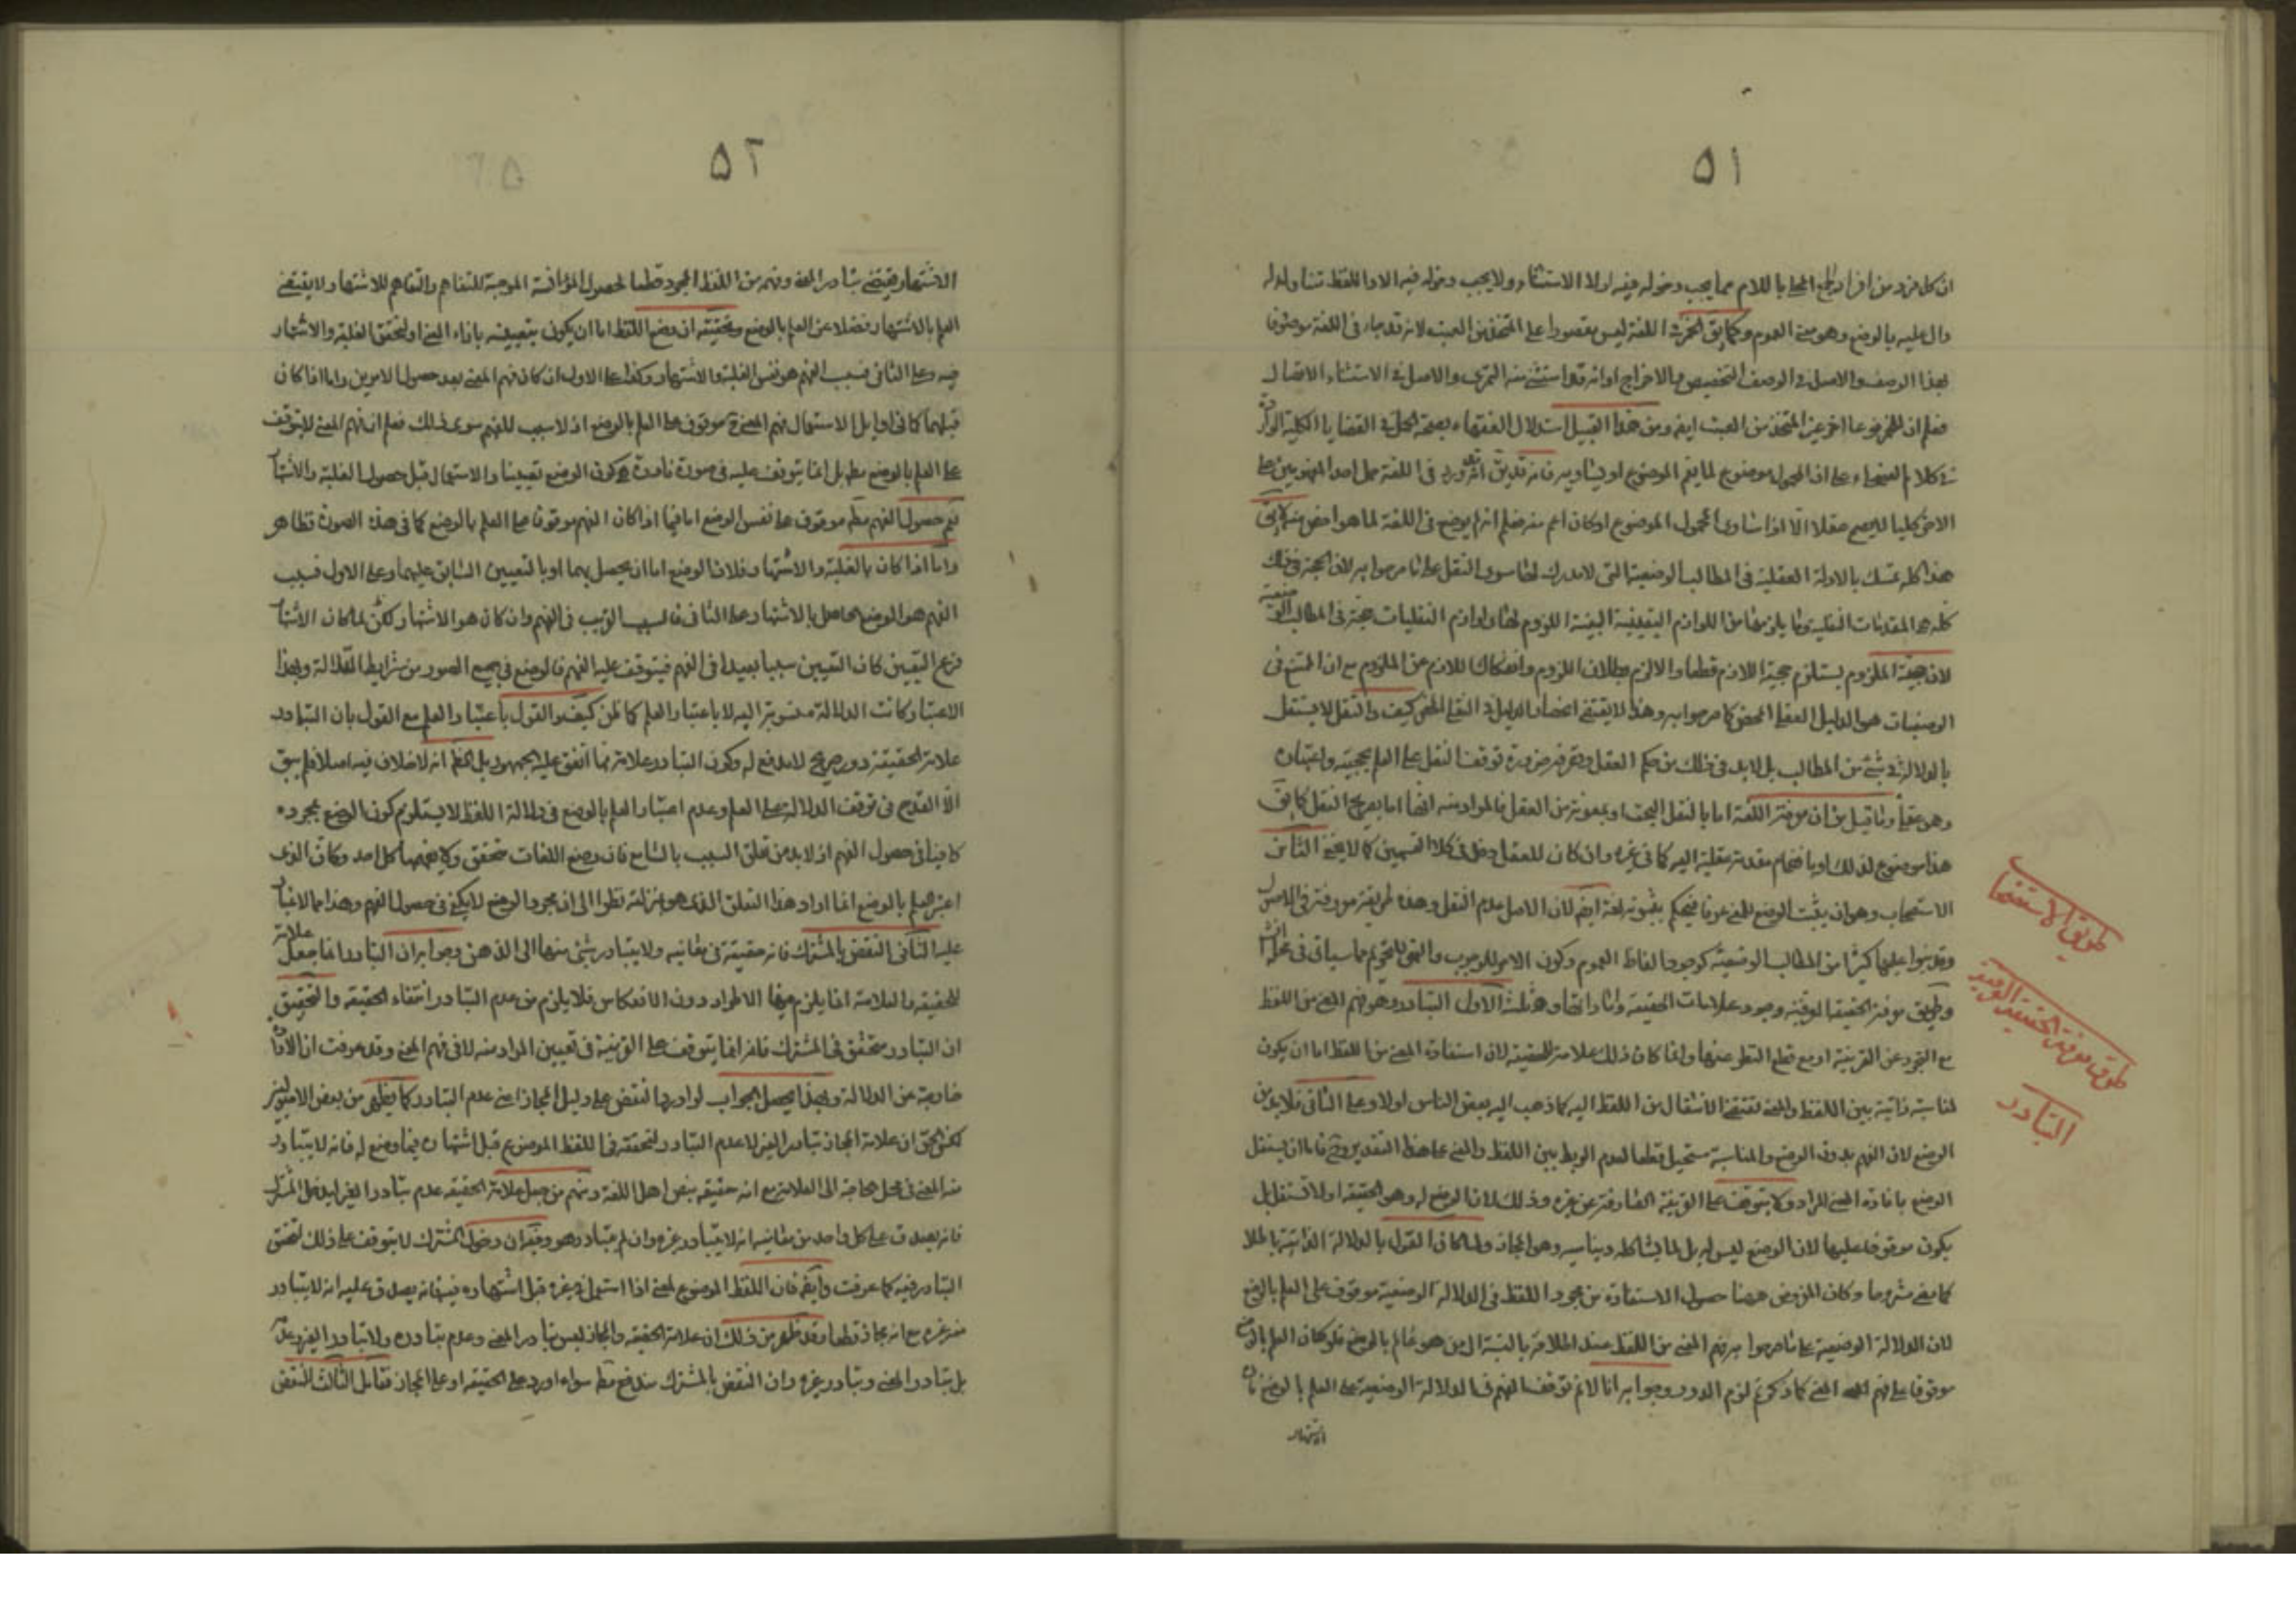 ٥١
ان كل فرد من افراد الجمع المحلى باللام مما يجب دخوله فيه لولا الاستثناء ولا يجب دخوله فيه الا واللفظ متناول له
دال عليه بالوضع وهو معنى العموم وكما يق الخمر في اللغة ليس مقصورا على المتخذ من العنب لانه قد جاء في اللغة موصوفا
بهذا الوصف والاصل في الوصف التخصيص والاخراج او انه قد استثنى منه التمري والاصل في الاستثناء الاتصال
فعلم ان للخمر نوعا اخر غير المتخذ من العنب ايضا ومن هذا القبيل استدلال الفقهاء بصحة الحمل في القضايا الكلية الواردة
في كلام الفصحاء على ان المحمول موضوع لما يعم الموضوع او يساويه فانه قد يق ورد في اللغة حمل احد المفهومين على
الاخر كليا فلا يصح عقلا الا اذا ساوى المحمول الموضوع او كان اعم منه فعلم انه لم يوضع في اللغة لما هو اخص منه
هذا كله تمسك بالادلة العقلية في المطالب الوضعية التي لا مدرك لها سوى النقل على ما صرحوا به لان الحجة في ذلك
كله هو المقدمات النقلية وما يلزمها من اللوازم اليقينية البينة اللزوم لها ولوازم النقليات حجة في المطالب الوضعية
لان حجية الملزوم يستلزم حجية اللازم قطعا والا لزم بطلان اللزوم وانفكاك اللازم عن الملزوم مع ان الممتنع في
الوضعيات هو الدليل العقلي المحض كما صرحوا به وهذا لا يقتضي انحصار الدليل في النقل المحض كيف والنقل لا يستقل
بالدلالة في شئ من المطالب بل لا بد في ذلك من حكم العقل وتصرفه ضرورة توقف النقل على العلم بحجيته واعتباره
وهو عقلي وما قيل من ان معرفة اللغة اما بالنقل البحت او بمعونة من العقل فالمراد منه انها اما بصريح النقل كما يق
هذا موضوع لذلك او بانضمام مقدمة عقلية اليه كما في غيره وان كان للعقل دخل في كلا القسمين كما لا يخفى الثامن
الاستصحاب وهو ان يثبت الوضع للمعنى عرفا فيحكم بثبوته لغة ايضا لان الاصل عدم النقل وهذه طريقة معروفة في الاصول
وقد بنوا عليها كثيرا من المطالب الوضعية كوجود الفاظ العموم وكون الامر للوجوب والنهي للتحريم مما سياتي في محله
وطريق معرفة الحقيقة العرفية وجود علامات الحقيقة واماراتها وهي ثلثة الاول التبادر وهو فهم المعنى من اللفظ
مع التجرد عن القرينة او مع قطع النظر عنها وانما كان ذلك علامة للحقيقة لان استفادة المعنى من اللفظ اما ان يكون
لمناسبة ذاتية بين اللفظ والمعنى تقتضي الانتقال من اللفظ اليه كما ذهب اليه بعض الناس او لا وعلى الثاني فلا بد من
الوضع لان الفهم بدون الوضع والمناسبة مستحيل قطعا لعدم الربط بين اللفظ والمعنى على هذا التقدير وح فاما ان يستقل
الوضع بافادة المعنى المراد ولا يتوقف على القرينة الصارفة عن غيره وذلك لان الوضع له وهو الحقيقة او لا تستقل بل
يكون موقوفا عليها لان الوضع ليس له بل لما يشاكله ويناسبه وهو المجاز ولما كان القول بالدلالة الذاتية باطلا
كما مضى مشروحا وكان المفروض ههنا حصول الاستفادة من مجرد اللفظ في الدلالة الوضعية موقوف على العلم بالوضع
لان الدلالة الوضعية على ما صرحوا به فهم المعنى من اللفظ عند اطلاقه بالنسبة الى من هو عالم بالوضع فلو كان العلم بالوضع
موقوفا على فهم المعنى كما ذكرتم لزم الدور وجوابه انا لا نم توقف الفهم في الدلالة الوضعية على العلم بالوضع فان
الاشتهار
طريق الاستصحاب
طريق معرفة الحقيقة العرفية
التبادر
٥٢
الاشتهار يقتضي تبادر المعنى وفهمه من اللفظ المجرد قطعا لحصول المؤانسة الموجبة للتفاهم والتفاهم للاشتهار ولا يقتضي
العلم بالاشتهار فضلا عن العلم بالوضع وتحقيقه ان وضع اللفظ اما ان يكون بتعيينه بازاء المعنى او لتحقق الغلبة والاشتهار
فيه وعلى الثاني فسبب الفهم هو نفس الغلبة والاشتهار وكذا على الاول ان كان فهم المعنى بعد حصول الامرين واما اذا كان
قبلهما كما في اوايل الاستعمال ففهم المعنى ح موقوف على العلم بالوضع اذ لا سبب للفهم سوى ذلك فعلم ان فهم المعنى لا يتوقف
على العلم بالوضع مط بل انما يتوقف عليه في صورة نادرة هي كون الوضع تعيينا والاستعمال قبل حصول الغلبة والاشتهار
نعم حصول الفهم مط موقوف على نفس الوضع اما فيما اذا كان الفهم موقوفا على العلم بالوضع كما في هذه الصورة فظاهر
واما اذا كان بالغلبة والاشتهار فلان الوضع اما ان يحصل بهما او بالتعيين السابق عليهما وعلى الاول فسبب
الفهم هو الوضع الحاصل بالاشتهار وعلى الثاني فالسبب القريب في الفهم وان كان هو الاشتهار لكن لما كان الاشتهار
فرع التعيين كان التعيين سببا بعيدا في الفهم فيتوقف عليه الفهم فالوضع في جميع الصور من شرايط الدلالة وبهذا
الاعتبار كانت الدلالة منسوبة اليه لا باعتبار العلم كما ظن كيف والقول باعتبار العلم مع القول بان التبادر
علامة الحقيقة دور صريح لا مدفع له وكون التبادر علامة مما اتفق عليه الجمهور بل الظ انه لا خلاف فيه اصلا فلم يبق
الا القدح في توقف الدلالة على العلم وعدم اعتبار العلم بالوضع في دلالة اللفظ لا يستلزم كون الوضع بمجرده
كافيا في حصول الفهم اذ لا بد من تعلق السبب بالسامع فان وضع اللغات متحقق ولا يفهمها كل احد وكان الذي
اعتبر العلم بالوضع انما اراد هذا التعلق الذي هو بمنزلته نظرا الى ان مجرد الوضع لا يكفي في حصول الفهم وهذا مما لا غبار
عليه الثاني النقض بالمشترك فانه حقيقة في معانيه ولا يتبادر شئ منها الى الذهن وجوابه ان التبادر انما جعل علامة
للحقيقة والعلامة انما يلزم فيها الاطراد دون الانعكاس فلا يلزم من عدم التبادر انتفاء الحقيقة والتحقيق
ان التبادر متحقق في المشترك فانه انما يتوقف على القرينة في تعيين المراد منه لا في فهم المعنى وقد عرفت ان الارادة
خارجة عن الدلالة وبهذا يحصل الجواب لو اوردوا النقض على دليل المجاز اعني عدم التبادر كما يظهر من بعض الاصوليين
لكن الحق ان علامة المجاز تبادر الغير لا عدم التبادر لتحققه في اللفظ الموضوع قبل اشتهاره فيما وضع له فانه لا يتبادر
منه المعنى في محل الحاجة الى العلامة مع انه حقيقة بنص اهل اللغة ومنهم من جعل علامة الحقيقة عدم تبادر الغير ليدخل المشترك
فانه يصدق على كل واحد من معانيه انه لا يتبادر غيره وان لم يتبادر هو وفيه ان دخول المشترك لا يتوقف على ذلك لتحقق
التبادر فيه كما عرفت وايضا فان اللفظ الموضوع لمعنى اذا استعمل في غيره قبل اشتهاره فيه فانه يصدق عليه انه لا يتبادر
منه غيره مع انه مجاز قطعا وقد ظهر من ذلك ان علامة الحقيقة والمجاز ليس تبادر المعنى وعدم تبادره ولا تبادر الغير وعدمه
بل تبادر المعنى وتبادر غيره وان النقض بالمشترك مندفع مط سواء اورد على الحقيقة او على المجاز فتامل الثالث النقض